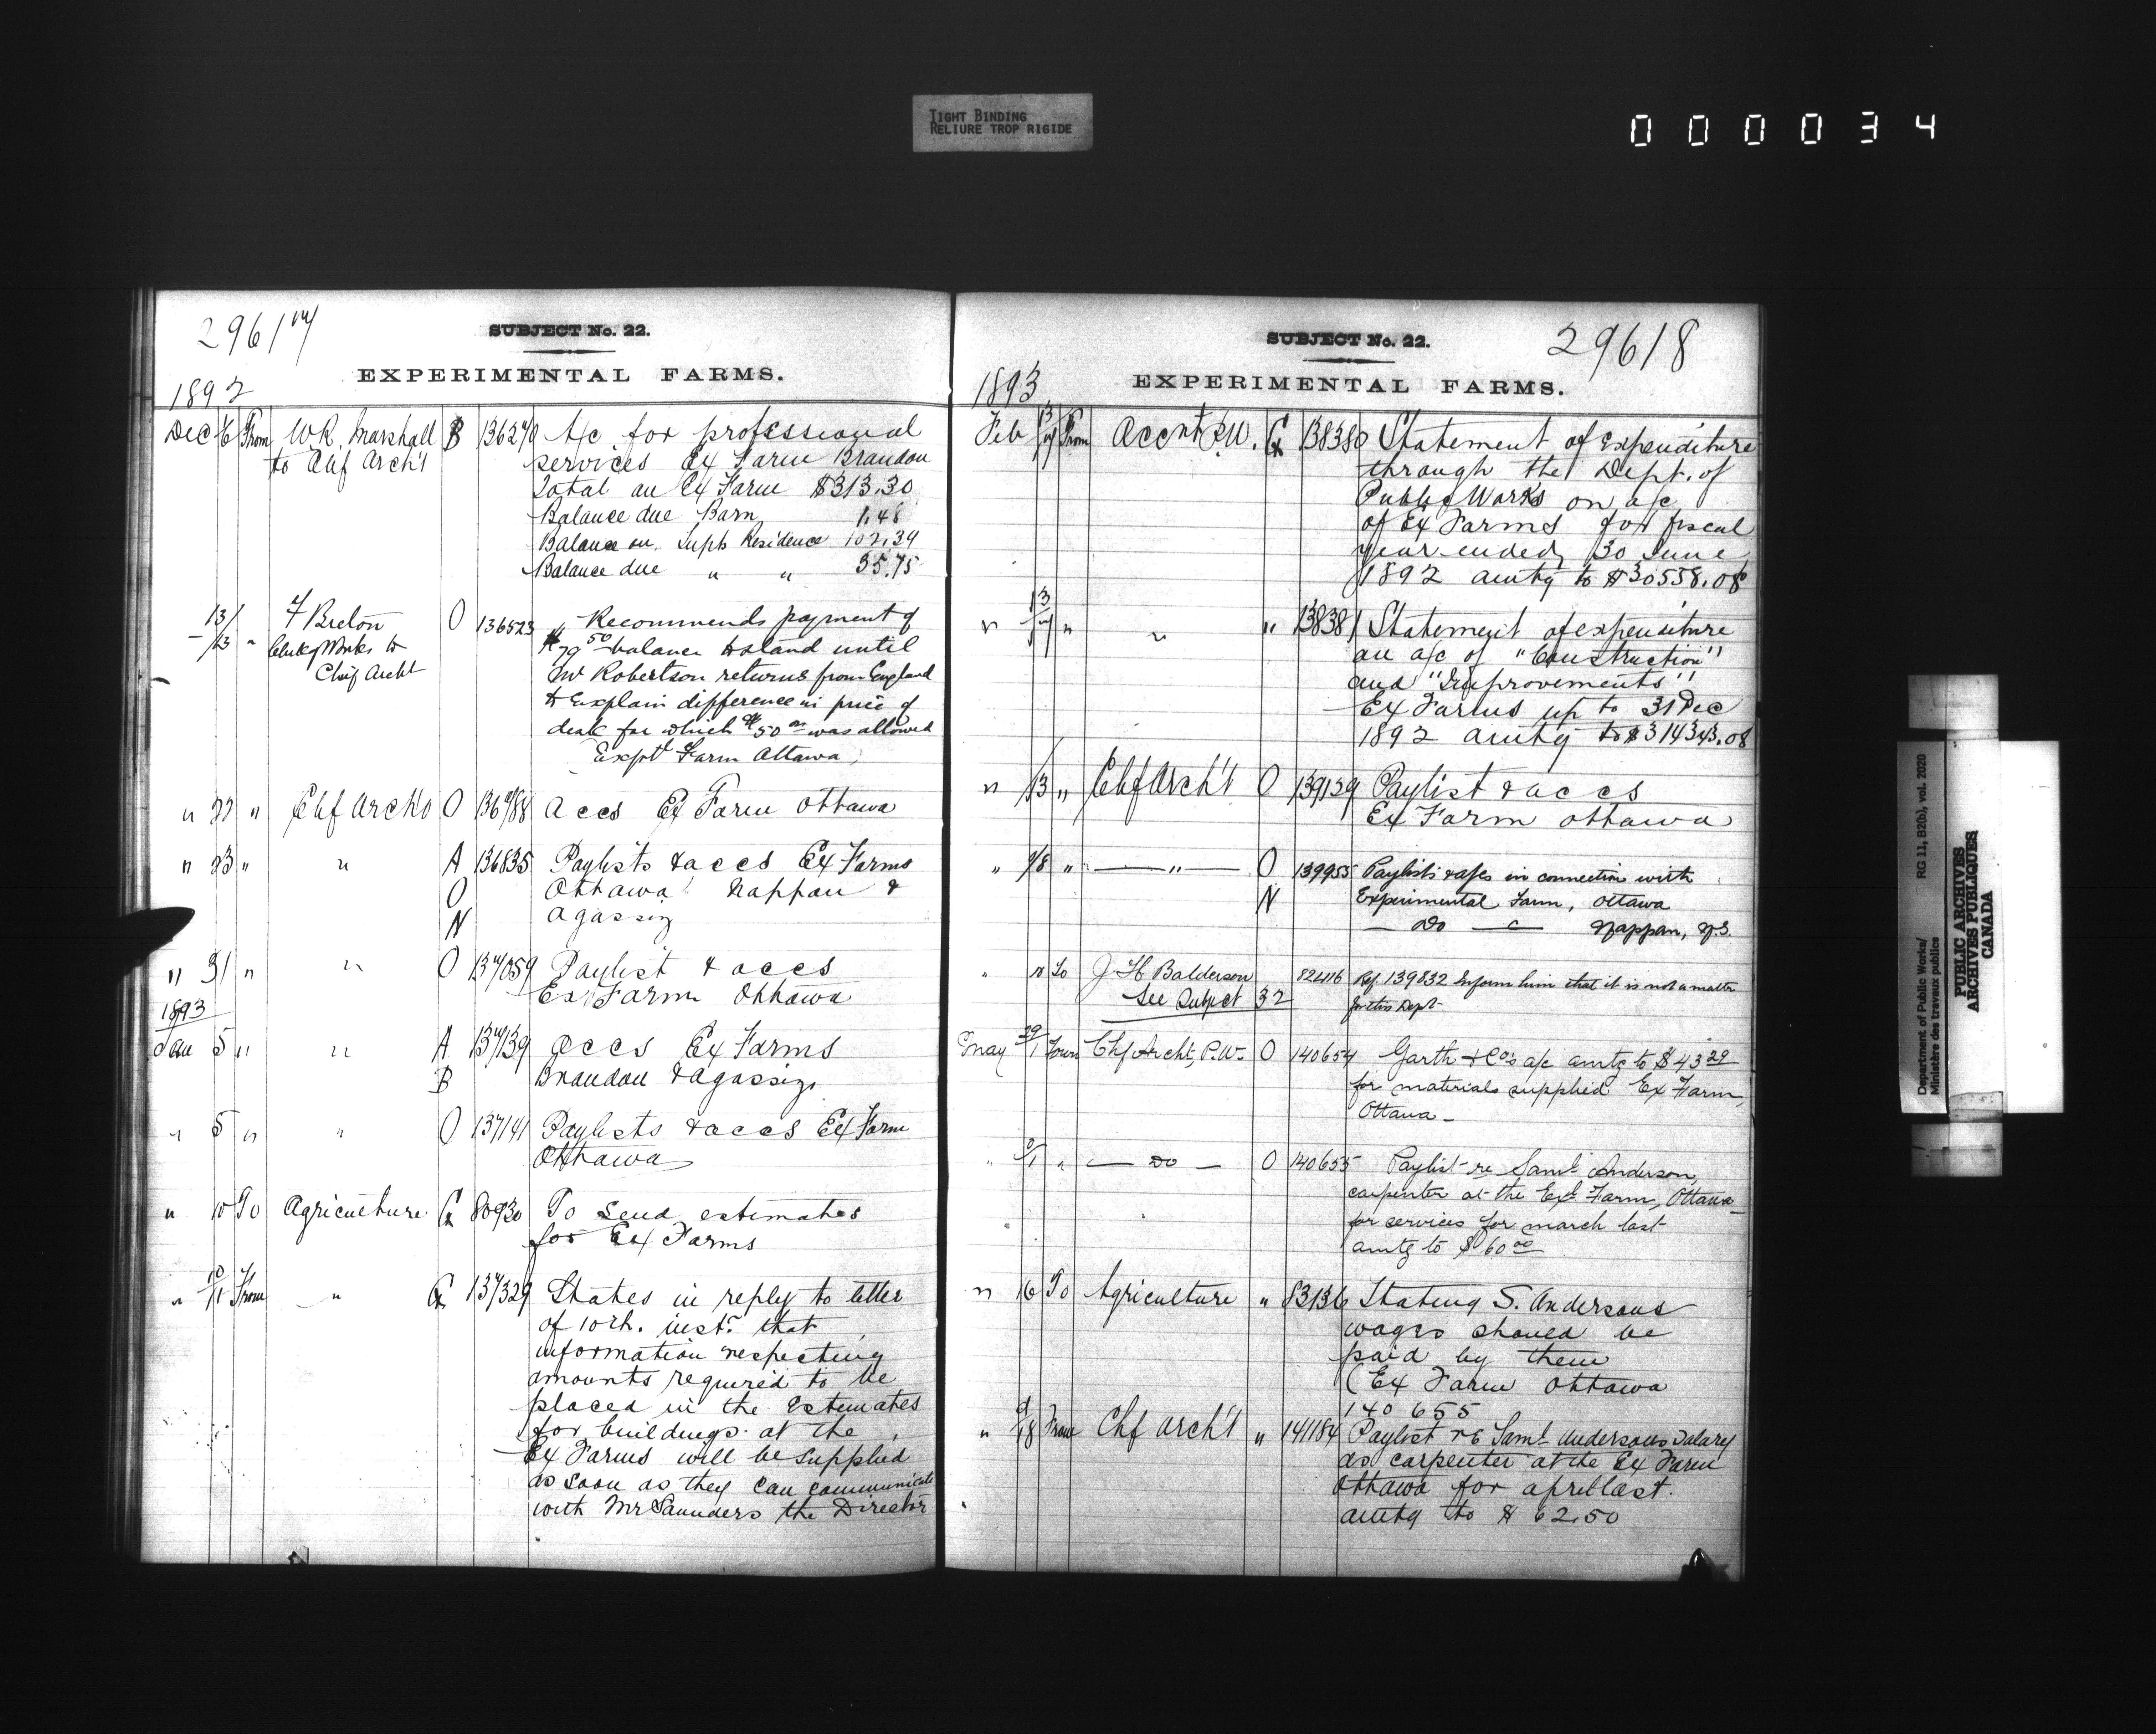 TIGHT BINDING
RELIURE TROP RIGIDE
000034
29617
SUBJECT No. 22.
EXPERIMENTAL FARMS.
1892
Dec 6 From W.R. Marshall B 136270 A/c for professional
to Chf Arch't services Ex Farm Brandon
Total on Ex Farm $313.30
Balance due Barn 1.48
Balance on Supts Residence 102.39
Balance due " " 35.75
13/13 " F Breton O 136523 Recommends payment of
Clerk of Works to balance to stand until
Chif Archt Mr Robertson returns from England
to explain difference in price of
desk for which $50 was allowed
Exptl Farm Ottawa
" 22 " Chf Archt O 136788 Accs Ex Farm Ottawa
" 23 " " A 136835 Paylists & accs Ex Farms
O Ottawa Nappan &
N Agassiz
" 31 " " O 137059 Paylist & accs
Ex Farm Ottawa
1893
Jan 5 " " A 137139 Accs Ex Farms
B Brandon & Agassiz
" 5 " " O 137141 Paylists & accs Ex Farm
Ottawa
" 10 To Agriculture G 80930 To send estimates
for Ex Farms
" 10/11 From " G 137329 States in reply to letter
of 10th. inst. that
information respecting
amounts required to be
placed in the Estimates
for buildings at the
Ex Farms will be supplied
as soon as they can communicate
with Mr Saunders the Director
SUBJECT No. 22.
29618
EXPERIMENTAL FARMS.
1893
Feb 13/17 From Accnt P.W. G 138380 Statement of Expenditure
through the Dept. of
Public Works on a/c
of Ex Farms for fiscal
year ended 30 June
1892 amtg to $30558.08
" 13/17 " " " 138381 Statement of expenditure
on a/c of "Construction"
and "Improvements"
Ex Farms up to 31 Dec
1892 amtg to $314343.08
" /13 " Chf Arch't O 139129 Paylist & accs
Ex Farm Ottawa
" " — " — O 139955 Paylists & a/cs in connection with
N Experimental Farm, Ottawa
— Do — Nappan, N.S.
" " To J. H. Balderson Ref. 139832 Inform him that it is not a matter
See Subject 32 for this Dept
May 29/1 From Chf Archt, P.W. O 140654 Garth & Co's a/c amtg to $43 29
for materials supplied Ex Farm,
Ottawa —
" " — Do — O 140655 Paylist re Saml Anderson,
carpenter at the Exl Farm, Ottawa
for services for march last
amtg to $60 00
" 16 To Agriculture " 83136 Stating S. Andersons
wages should be
paid by them
(Ex Farm Ottawa
140 655
" 9/18 From Chf Arch't " 141184 Paylist re Saml Andersons Salary
as carpenter at the Ex Farm
Ottawa for april last.
amtg to $62.50
Department of Public Works/
Ministère des travaux publics
RG 11, B2(b), vol. 2020
PUBLIC ARCHIVES
ARCHIVES PUBLIQUES
CANADA